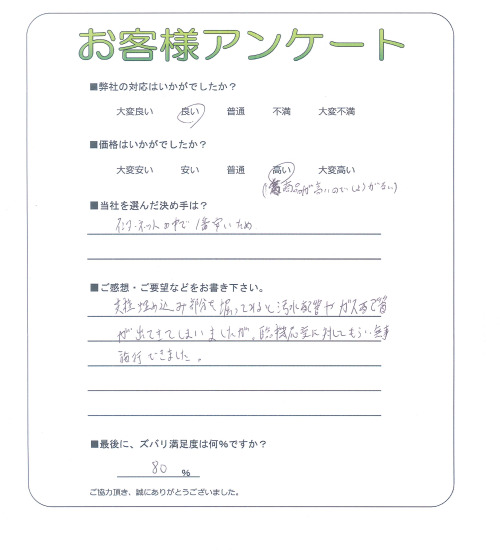 お客様アンケート
■弊社の対応はいかがでしたか？
大変良い　良い　普通　不満　大変不満
■価格はいかがでしたか？
大変安い　安い　普通　高い　大変高い
(商品が高いのでしょうがない)
■当社を選んだ決め手は？
インターネットの中で1番安いため
■ご感想・ご要望などをお書き下さい。
支柱埋め込み部分を掘ってみると汚水配管やガス配管
が出てきてしまいましたが、臨機応変に対応してもらい無事
施行できました。
■最後に、ズバリ満足度は何%ですか？
80 %
ご協力頂き、誠にありがとうございました。